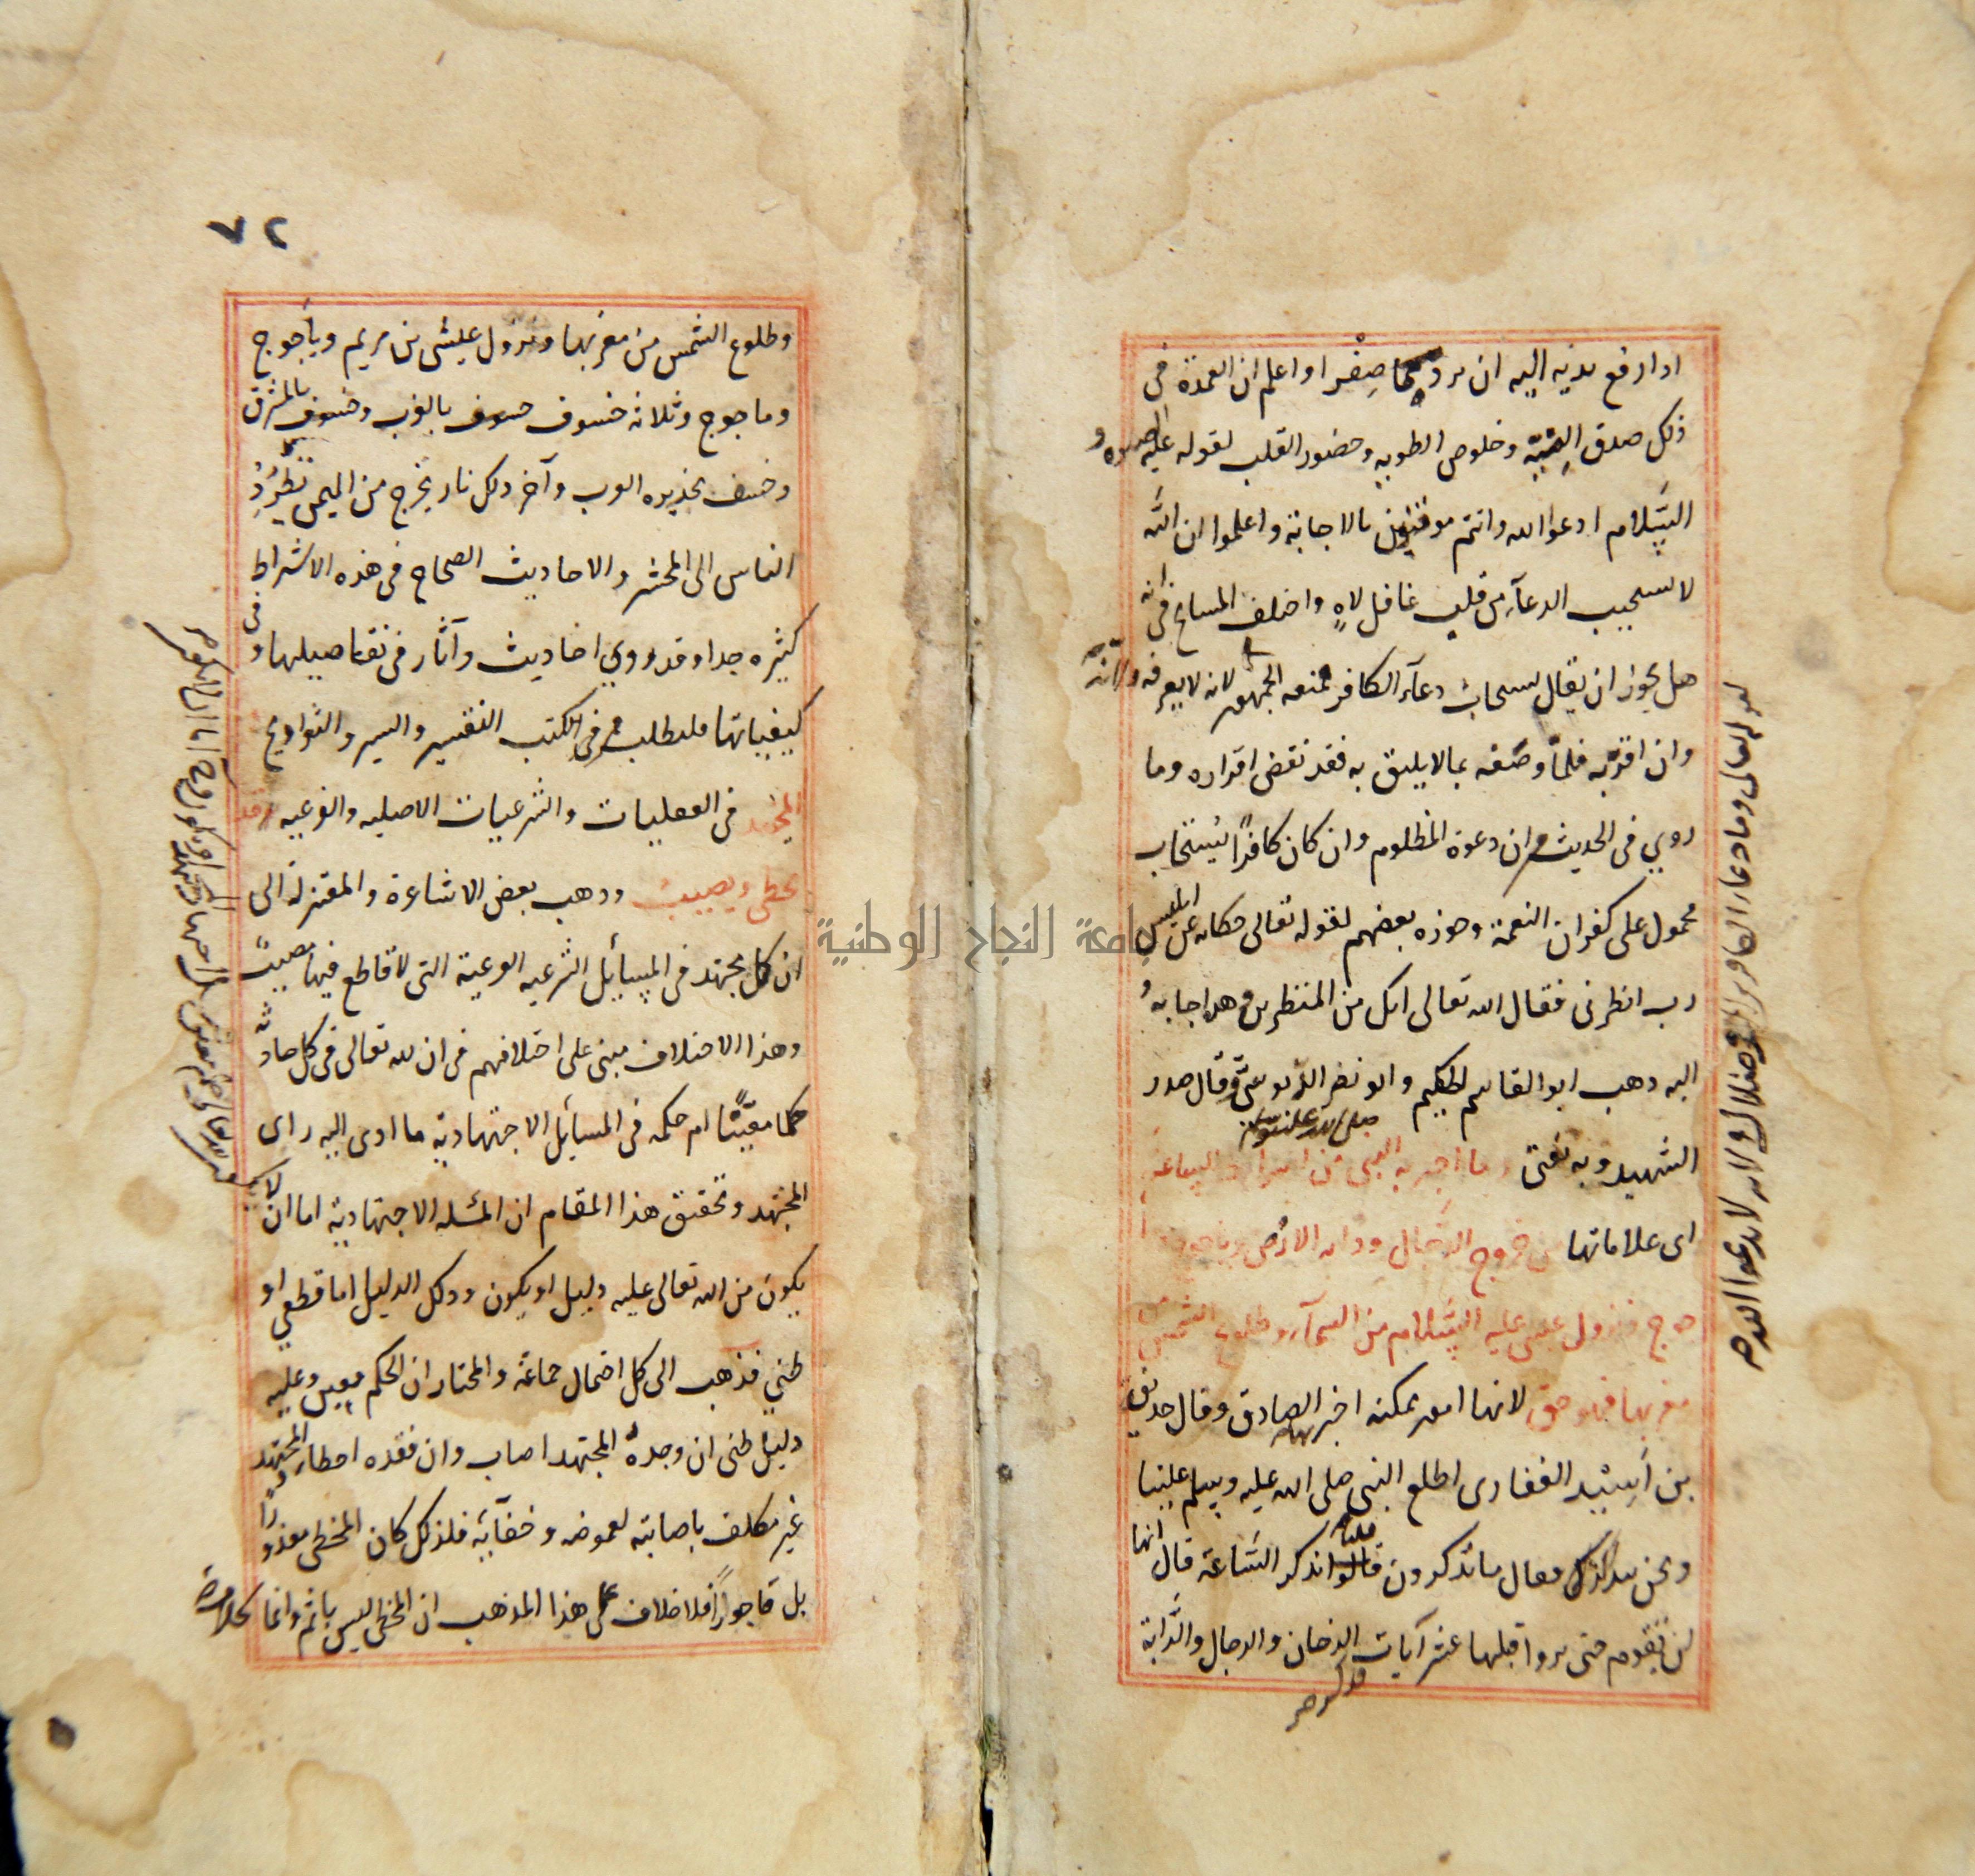 اذا رفع يديه اليه ان يردهما صِفْرا واعلم ان العمدة فى
ذلك صدق النية وخلوص الطويه وحضور القلب لقوله عليه الصلوه و
السَّلام ادعوا الله وانتم موقنون بالاجابة واعلموا ان الله
لا يستجيب الدعآء من قلب غافل لاهٍ واختلف المشايخ فى انه
هل يجوز ان يقال يستجاب دعآء الكافر فمنعه الجمهور لانه لا يعرفه ولانه
وان اقرّ به فلمّا وصَفه بما لا يليق به فقد نقض اقراره وما
روي فى الحديث من ان دعوة المظلوم وان كان كافرًا يُستجاب
محمول على كفران النعمة وجوزه بعضهم لقوله تعالى حكاية عن ابليس
رب انظرنى فقال الله تعالى انك من المنظرين وهذا اجابةٌ
اليه ذهب ابو القاسم الحكيم وابو نصر الدبوسى وقال صدر
الشهيد وبه يُفتى وما اخبر به النبى صلى الله عليه وسلم من اشراط الساعة
اى علاماتها من خروج الدَّجال ودابه الارض وياجوج وما
جوج ونزول عيسى عليه السَّلام من السمآء وطلوع الشمس من
مغربها فهو حق لانها امور ممكنه اخبر بها الصادق وقال حذيفة
بن اَسِيْد الغفارى اطلع النبى صلى الله عليه وسلم علينا
ونحن نتذاكر فقال ما تذكرون قلنا نذكر السَّاعة قال انها
لن تقوم حتى تروا قبلها عشر آيات فذكر الدخان والدجال والدَّابة
لقوله تعالى وما دعاء الكافرين الا فى ضلال ولانه لا يدعوا الله
٧٢
وطلوع الشمس من مغربها ونزول عيسَى بن مريم ويأجوج
وماجوج وثلاثه خسوف خسوف بالغرب وخسوف بالمشرق
وخسف بجزيره العرب وآخر ذلك نار يخرج من اليمن تَطْرُدُ
الناس الى المحشر والاحاديث الصحاح فى هذه الاشراط
كثيره جدا وقد روي احاديث وآثار فى تفاصيلها وفى
كيفياتها فليطلب من كتب التفسير والسير والتواريخ
المجتهد فى العقليات والشرعيات الاصليه والفرعيه قد
يخطى ويصيب وذهب بعض الاشاعرة والمعتزلة الى
ان كل مجتهد فى المسآئل الشرعيه الفرعية التى لا قاطع فيها مصيبٌ
وهذا الاختلاف مبنى على اختلافهم فى ان لله تعالى فى كل حادثه
حكما معيّنًا ام حكمه فى المسآئل الاجتهادية ما ادى اليه راى
المجتهد وتحقيق هذا المقام ان المسئله الاجتهادية اما ان لا
يكون من الله تعالى عليه دليل او يكون وذلك الدليل اما قطعي او
ظني فذهب الى كل احتمال جماعة والمختار ان الحكم معين وعليه
دليل ظنى ان وجدهُ المجتهد اصاب وان فقده اخطاء والمجتهد
غير مكلف باصابته لغموضه وخفآئِه فلذلك كان المخطى معذورًا
بل مأجورًا فلا خلاف على هذا المذهب ان المخطى ليس باثم وانما